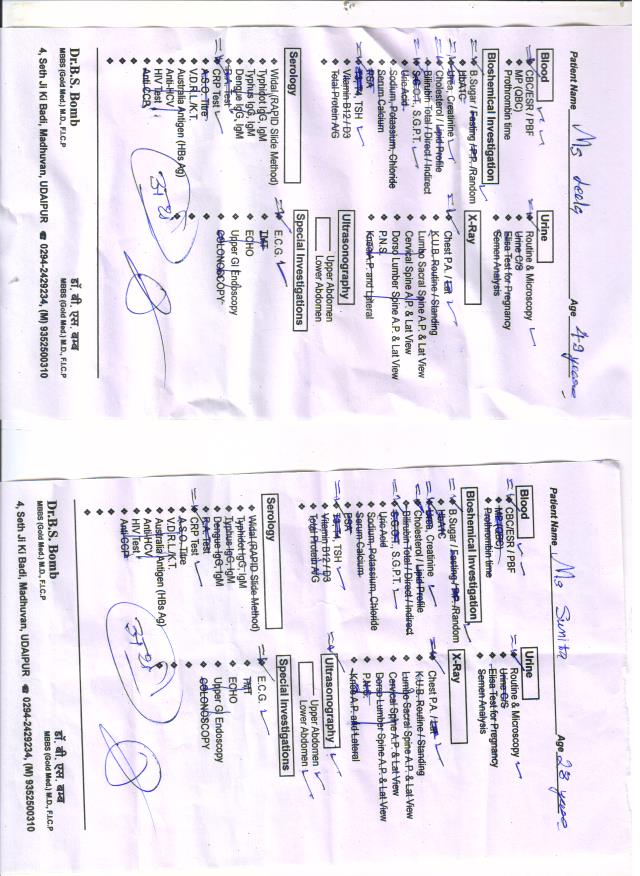 Patient Name Ms Leela Age 49 years
Blood
CBC/ESR / PBF
MP (QBC)
Prothrombin time
Biochemical Investigation
B.Sugar / Fasting / P.P. /Random
HbA1C
Urea, Creatinine
Cholesterol / Lipid Profile
Bilirubin Total / Direct / Indirect
S.G.O.T., S.G.P.T.
Uric Acid
Sodium, Potassium, Chloride
Serum Calcium
PSA
T3, T4, TSH
Vitamin B12 / D3
Total Protein A/G
Serology
Widal (RAPID Slide Method)
Typhidot IgG, IgM
Typhus IgG, IgM
Dengue IgG, IgM
R.A. Test
CRP Test
A.S.O. Titre
V.D.R.L./K.T.
Australia Antigen (HBs Ag)
Anti-HCV
HIV Test
Anti CCP
Urine
Routine & Microscopy
Urine C/S
Elisa Test for Pregnancy
Semen Analysis
X-Ray
Chest P.A. / Lat
K.U.B. Routine / Standing
Lumbo Sacral Spine A.P. & Lat View
Cervical Spine A.P. & Lat View
Dorso Lumber Spine A.P. & Lat View
P.N.S.
Knee A.P. and Lateral
Ultrasonography
Upper Abdomen
Lower Abdomen
Special Investigations
E.C.G.
TMT
ECHO
Upper GI Endoscopy
COLONOSCOPY
Dr.B.S. Bomb
MBBS (Gold Med.) M.D., F.I.C.P
डॉ. बी. एस. बम्ब
MBBS (Gold Med.) M.D., F.I.C.P
4, Seth Ji Ki Badi, Madhuvan, UDAIPUR ☎ 0294-2429234, (M) 9352500310
Patient Name Ms Sunita Age 28 years
Blood
CBC/ESR / PBF
MP (QBC)
Prothrombin time
Biochemical Investigation
B.Sugar / Fasting / P.P. /Random
HbA1C
Urea, Creatinine
Cholesterol / Lipid Profile
Bilirubin Total / Direct / Indirect
S.G.O.T., S.G.P.T.
Uric Acid
Sodium, Potassium, Chloride
Serum Calcium
PSA
T3, T4, TSH
Vitamin B12 / D3
Total Protein A/G
Serology
Widal (RAPID Slide Method)
Typhidot IgG, IgM
Typhus IgG, IgM
Dengue IgG, IgM
R.A. Test
CRP Test
A.S.O. Titre
V.D.R.L./K.T.
Australia Antigen (HBs Ag)
Anti-HCV
HIV Test
Anti CCP
Urine
Routine & Microscopy
Urine C/S
Elisa Test for Pregnancy
Semen Analysis
X-Ray
Chest P.A. / Lat
K.U.B. Routine / Standing
Lumbo Sacral Spine A.P. & Lat View
Cervical Spine A.P. & Lat View
Dorso Lumber Spine A.P. & Lat View
P.N.S.
Knee A.P. and Lateral
Ultrasonography
Upper Abdomen
Lower Abdomen
Special Investigations
E.C.G.
TMT
ECHO
Upper GI Endoscopy
COLONOSCOPY
Dr.B.S. Bomb
MBBS (Gold Med.) M.D., F.I.C.P
डॉ. बी. एस. बम्ब
MBBS (Gold Med.) M.D., F.I.C.P
4, Seth Ji Ki Badi, Madhuvan, UDAIPUR ☎ 0294-2429234, (M) 9352500310